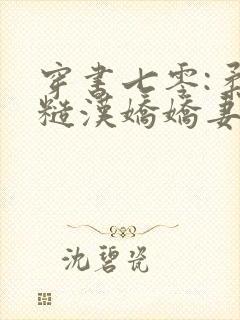 穿书七零:柔
糙汉娇娇妻
沈碧瓷